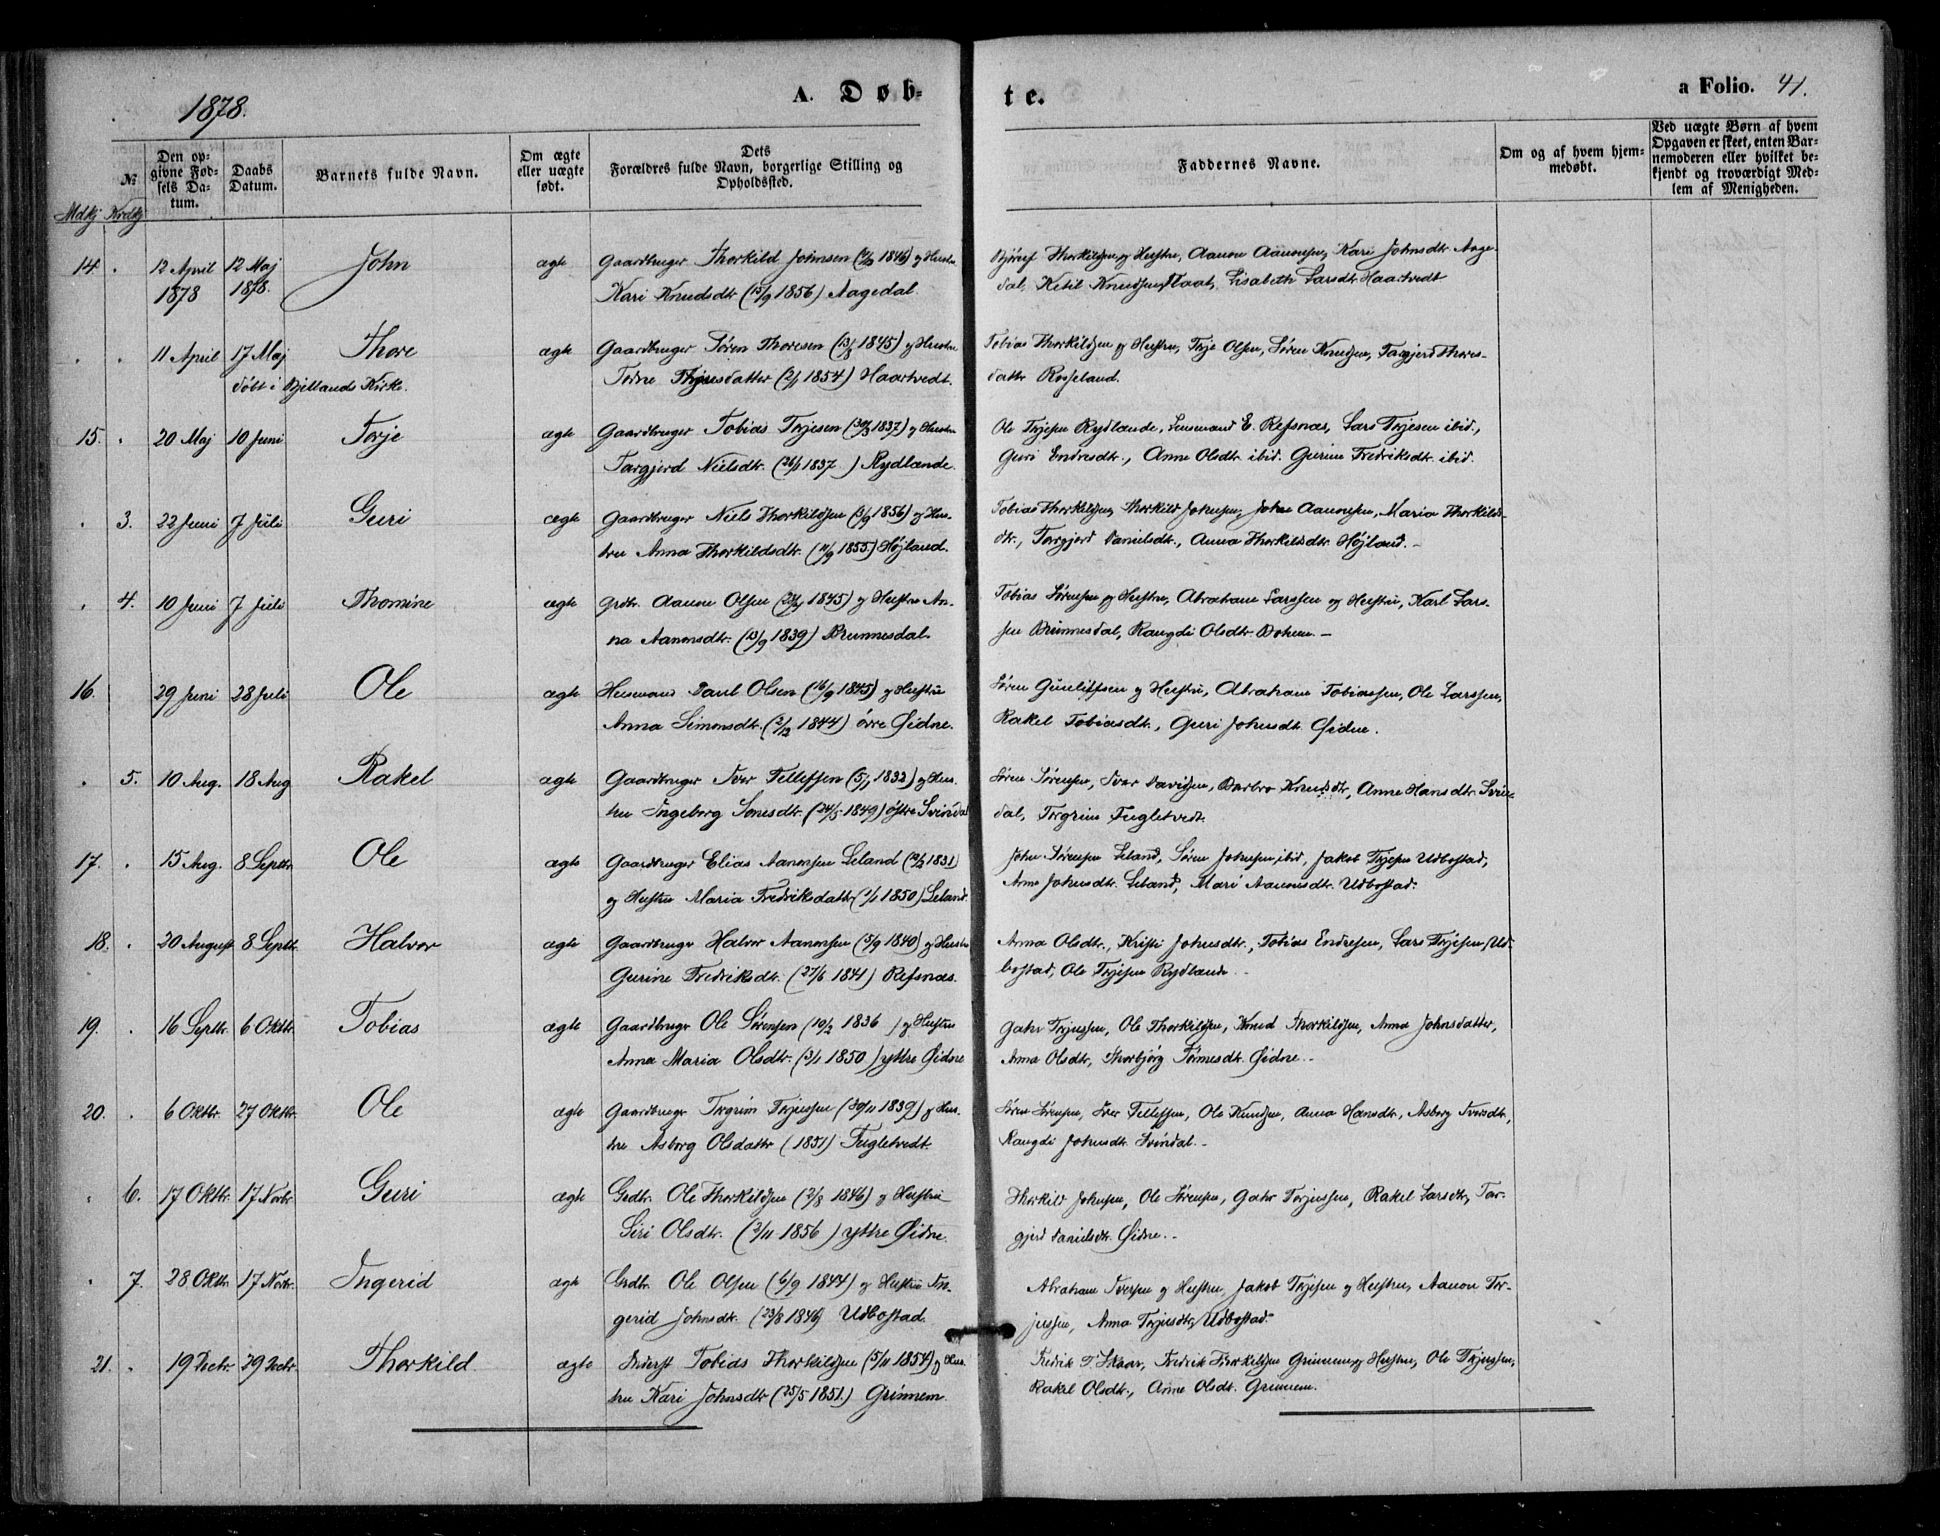 1878.
A. Døb-
te.
a Folio. 41.
№
Mdkj Kvdkj
Den op-
givne Fød-
sels Da-
tum.
Daabs
Datum.
Barnets fulde Navn.
Om ægte
eller uægte
født.
Dets
Forældres fulde Navn, borgerlige Stilling og
Opholdssted.
Faddernes Navne.
Om og af hvem hjem-
medøbt.
Ved uægte Børn af hvem
Opgaven er skeet, enten Bar-
nemoderen eller hvilket be-
kjendt og troværdigt Med-
lem af Menigheden.
14. 12 April 12 Maj John ægte Gaardbruger Thorkild Johnsen 1846) og Hustru
1878 1878. Kari Knudsdtr (15/9 1856) Aagedal.
Thorkildsen og Hustru, Aanon Aanonsen, Kari Johnsdtr Aage-
dal, Ketil Knudsen Lisabeth Larsdtr Haartvedt
11 April 17 Maj Thore ægte Gaardbruger Sören Thoresen (13/8 1845) og Hustru
döbt i Bjellands Kirke. (2/1 1854) Haartvedt.
Tobias Thorkildsen og Hustru, Terje Olsen, Sören Knudsen, Targjerd Thores-
datter Rosseland.
15. 20 Maj 10 Juni Terje ægte Gaardbruger Tobias Terjesen (30/3 1837) og Hustru
Targjerd Nielsdtr. (26/1 1837) Rydlande.
Ole Terjesen Rydlande, Lensmand E. Refsnæs, Lars Terjesen ibid.,
Guri Endresdtr., Anne Olsdtr ibid. Gurine Fredriksdtr ibid.
3. 22 Juni 7 Juli Guri ægte Gaardbruger Niels Thorkildsen (3/9 1856) og Hus-
tru Anna Thorkildsdtr. (11/9 1855.) Højland.
Tobias Thorkildsen, Thorkild Johnsen, John Aanonsen, Maria Thorkilds-
dtr., Targjerd Danielsdtr., Anna Thorkildsdtr Højland. –
4. 10 Juni 7 Juli Thomine ægte Grdbr. Aanon Olsen 1845) og Hustru An-
na Aanonsdtr. (13/9 1839) Brunnesdal.
Tobias Sørensen og Hustru, Abraham Larssen og Hustru, Karl Lars-
sen Brunnesdal, Rangdi Olsdtr –
16. 29 Juni 28 Juli Ole ægte Husmand Paul Olsen (16/9 1845) og Hustru
Anna Simonsdtr. (2/12 1844) övre Øidne.
Sören Gunulfsen og Hustru, Abraham Tobiassen, Ole Larssen,
Rakel Tobiasdtr., Guri Johnsdtr Øidne.
5. 10 Aug. 18 Aug Rakel ægte Gaardbruger Iver Tellefsen (5/1 1832) og Hus-
tru Ingeborg (24/5 1849) östre Svindal
Sören Sörensen, Iver Davidsen, Barbro Knudsdtr, Anne Hansdtr Svin-
dal, Tergrim Fugletvedt.
17. 15 Aug. 8 Septbr. Ole ægte Gaardbruger Elias Aanonsen Leland 1831)
og Hustru Maria Fredriksdatter (1/1 1850) Leland.
John Sörensen Leland, Sören Johnsen, ibid, Jakob Terjesen Udbostad,
Anne Johnsdtr. Leland, Mari Aanonsdtr. Udbostad.
18. 20 August 8 Septbr. Halvor ægte Gaardbruger Halvor Aanonsen (5/9 1840) og Hustru
Gurine Fredriksdtr. (27/6 1841) Refsnæs.
Anna Olsdtr., Kristi Johnsdtr., Tobias Endresen, Lars Terjesen, Ud-
bostad, Ole Terjesen Rydlande
19. 16 Septbr. 6 Oktbr. Tobias ægte Gaardbruger Ole Sørensen (10/2 1836) og Hustru
Anna Maria Olsdtr. (3/1 1850) ytre Øidne
Gahr Terjussen, Ole Thorkildsen, Knud Thorkildsen, Anna Johnsdatter,
Anna Olsdtr, Thorbjörg Tönnesdtr. Øidne.
20. 6 Oktbr. 27 Oktbr. Ole ægte Gaardbruger Tergrim Terjussen (30/11 1839) og Hus-
tru Asborg Olsdatter (1851) Fugletvedt.
Sören Sörensen, Iver Tellefsen, Ole Knudsen, Anna Hansdtr., Asborg Iversdtr,
Rangdi Johnsdtr. Svindal. –
6. 17 Oktbr. 17 Novbr. Guri ægte Grdbr. Ole Thorkildsen (2/8 1846) og Hustru
Siri Olsdtr. (3/11 1856) ytre Øidne.
Thorkild Johnsen, Ole Sörensen, Gahr Terjussen, Rakel Larsdtr, Tar-
gjerd Danielsdtr. Øidne.
7. 28 Oktbr. 17 Novbr. Ingerid ægte Grdbr. Ole Olsen (6/9 1844) og Hustru In-
gerid Johnsdtr. (23/8 1846) Udbostad.
Abraham Iversen og Hustru, Jakob Terjesen og Hustru, Aanon Ter-
jussen, Anna Terjusdtr, Udbostad.
21. 19 Decbr. 29 Decbr. Thorkild ægte Inderst Tobias Thorkildsen (5/11 1854) og Hus-
tru Kari Johnsdtr (25/5 1851.) Grinnem.
Fredrik T. Skaar, Fredrik Thorkildsen Grinnem og Hustru, Ole Terjussen,
Rakel Olsdtr., Anne Olsdtr. Grinnem.